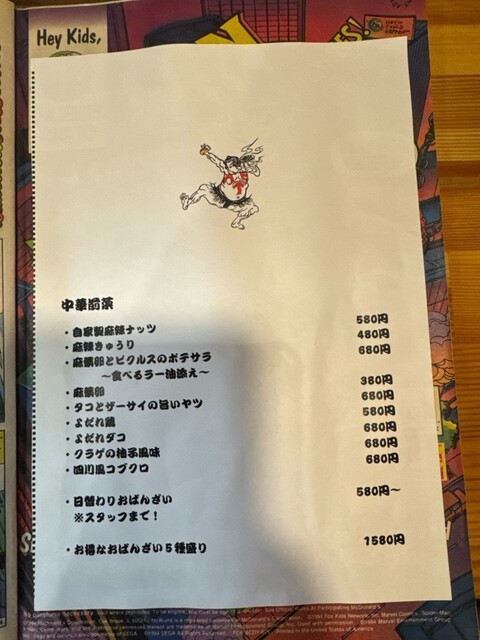 Hey Kids,
中華前菜
・自家製麻辣ナッツ 580円
・麻辣きゅうり 480円
とピクルスのポテサラ 680円
～食べるラー油添え～
380円
・タコとザーサイの旨いヤツ 680円
・よだれ鶏 580円
・よだれダコ 680円
・クラゲの柚子風味 680円
・四川風コブクロ 680円
・日替わりおばんざい 580円～
※スタッフまで！
・お得なおばんざい５種盛り 1580円